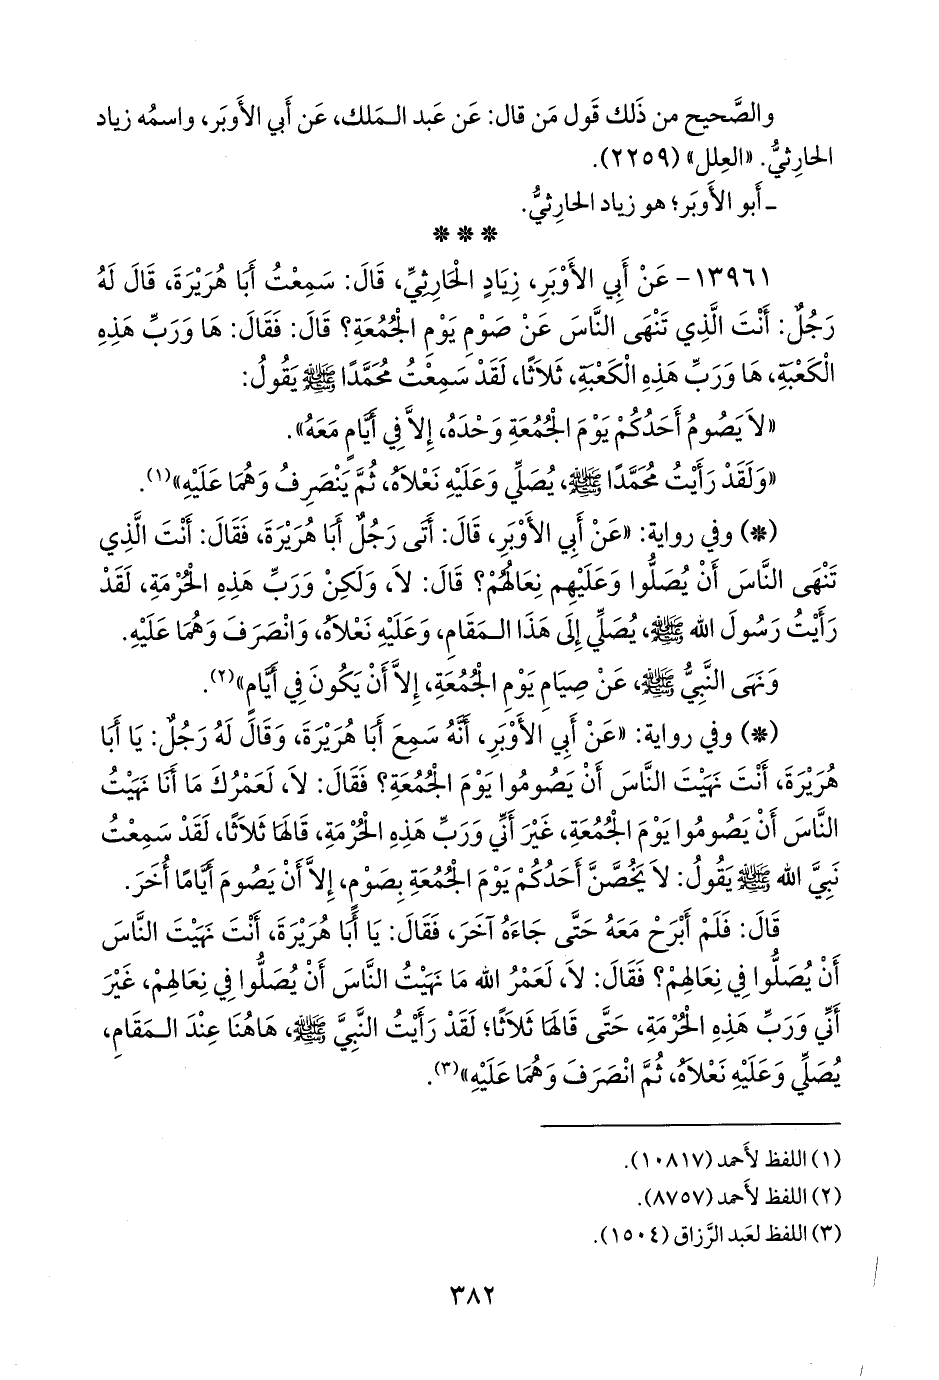 والصَّحيح من ذَلك قَول مَن قال: عَن عَبد الـمَلك، عَن أَبي الأَوبَر، واسمُه زياد
الحارِثيُّ. «العِلل» (٢٢٥٩).
ـ أَبو الأَوبَر؛ هو زياد الحارِثيُّ.
* * *
١٣٩٦١- عَنْ أَبِي الأَوْبَرِ، زِيَادٍ الْحَارِثِيِّ، قَالَ: سَمِعْتُ أَبَا هُرَيْرَةَ، قَالَ لَهُ
رَجُلٌ: أَنْتَ الَّذِي تَنْهَى النَّاسَ عَنْ صَوْمِ يَوْمِ الْجُمُعَةِ؟ قَالَ: فَقَالَ: هَا وَرَبِّ هَذِهِ
الْكَعْبَةِ، هَا وَرَبِّ هَذِهِ الْكَعْبَةِ، ثَلاَثًا، لَقَدْ سَمِعْتُ مُحَمَّدًا ﷺ يَقُولُ:
«لاَ يَصُومُ أَحَدُكُمْ يَوْمَ الْجُمُعَةِ وَحْدَهُ، إِلاَّ فِي أَيَّامٍ مَعَهُ».
«وَلَقَدْ رَأَيْتُ مُحَمَّدًا ﷺ، يُصَلِّي وَعَلَيْهِ نَعْلاَهُ، ثُمَّ يَنْصَرِفُ وَهُمَا عَلَيْهِ»(١).
(*) وفي رواية: «عَنْ أَبِي الأَوْبَرِ، قَالَ: أَتَى رَجُلٌ أَبَا هُرَيْرَةَ، فَقَالَ: أَنْتَ الَّذِي
تَنْهَى النَّاسَ أَنْ يُصَلُّوا وَعَلَيْهِم نِعَالُهُمْ؟ قَالَ: لاَ، وَلَكِنْ وَرَبِّ هَذِهِ الْحُرْمَةِ، لَقَدْ
رَأَيْتُ رَسُولَ الله ﷺ، يُصَلِّي إِلَى هَذَا الـمَقَامِ، وَعَلَيْهِ نَعْلاَهُ، وَانْصَرَفَ وَهُمَا عَلَيْهِ.
وَنَهَى النَّبِيُّ ﷺ، عَنْ صِيَامِ يَوْمِ الْجُمُعَةِ، إِلاَّ أَنْ يَكُونَ فِي أَيَّامٍ»(٢).
(*) وفي رواية: «عَنْ أَبِي الأَوْبَرِ، أَنَّهُ سَمِعَ أَبَا هُرَيْرَةَ، وَقَالَ لَهُ رَجُلٌ: يَا أَبَا
هُرَيْرَةَ، أَنْتَ نَهَيْتَ النَّاسَ أَنْ يَصُومُوا يَوْمَ الْجُمُعَةِ؟ فَقَالَ: لاَ، لَعَمْرُكَ مَا أَنَا نَهَيْتُ
النَّاسَ أَنْ يَصُومُوا يَوْمَ الْجُمُعَةِ، غَيْرَ أَنِّي وَرَبِّ هَذِهِ الْحُرْمَةِ، قَالَهَا ثَلاَثًا، لَقَدْ سَمِعْتُ
نَبِيَّ الله ﷺ يَقُولُ: لاَ يَخُصَّنَّ أَحَدُكُمْ يَوْمَ الْجُمُعَةِ بِصَوْمٍ، إِلاَّ أَنْ يَصُومَ أَيَّامًا أُخَرَ.
قَالَ: فَلَمْ أَبْرَحْ مَعَهُ حَتَّى جَاءَهُ آخَرُ، فَقَالَ: يَا أَبَا هُرَيْرَةَ، أَنْتَ نَهَيْتَ النَّاسَ
أَنْ يُصَلُّوا فِي نِعَالِهِمْ؟ فَقَالَ: لاَ، لَعَمْرُ الله مَا نَهَيْتُ النَّاسَ أَنْ يُصَلُّوا فِي نِعَالِهِمْ، غَيْرَ
أَنِّي وَرَبِّ هَذِهِ الْحُرْمَةِ، حَتَّى قَالَهَا ثَلاَثًا؛ لَقَدْ رَأَيْتُ النَّبِيَّ ﷺ، هَاهُنَا عِنْدَ الـمَقَامِ،
يُصَلِّي وَعَلَيْهِ نَعْلاَهُ، ثُمَّ انْصَرَفَ وَهُمَا عَلَيْهِ»(٣).
(١) اللفظ لأَحمد (١٠٨١٧).
(٢) اللفظ لأَحمد (٨٧٥٧).
(٣) اللفظ لعَبد الرَّزاق (١٥٠٤).
٣٨٢